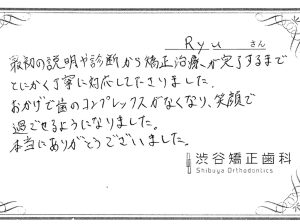 Ryu さん
最初の説明や診断から矯正治療が完了するまで
とにかく丁寧に対応してくださりました。
おかげで歯のコンプレックスがなくなり、笑顔で
過ごせるようになりました。
本当にありがとうございました。
渋谷矯正歯科
Shibuya Orthodontics